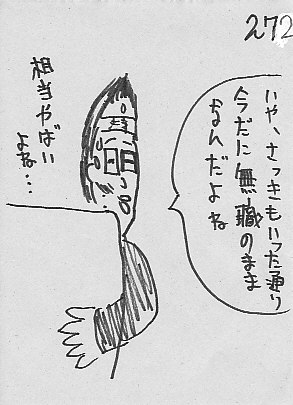 272
いや、さっきもいった通り
今だに無職のまま
なんだよね
相当やばい
よね…